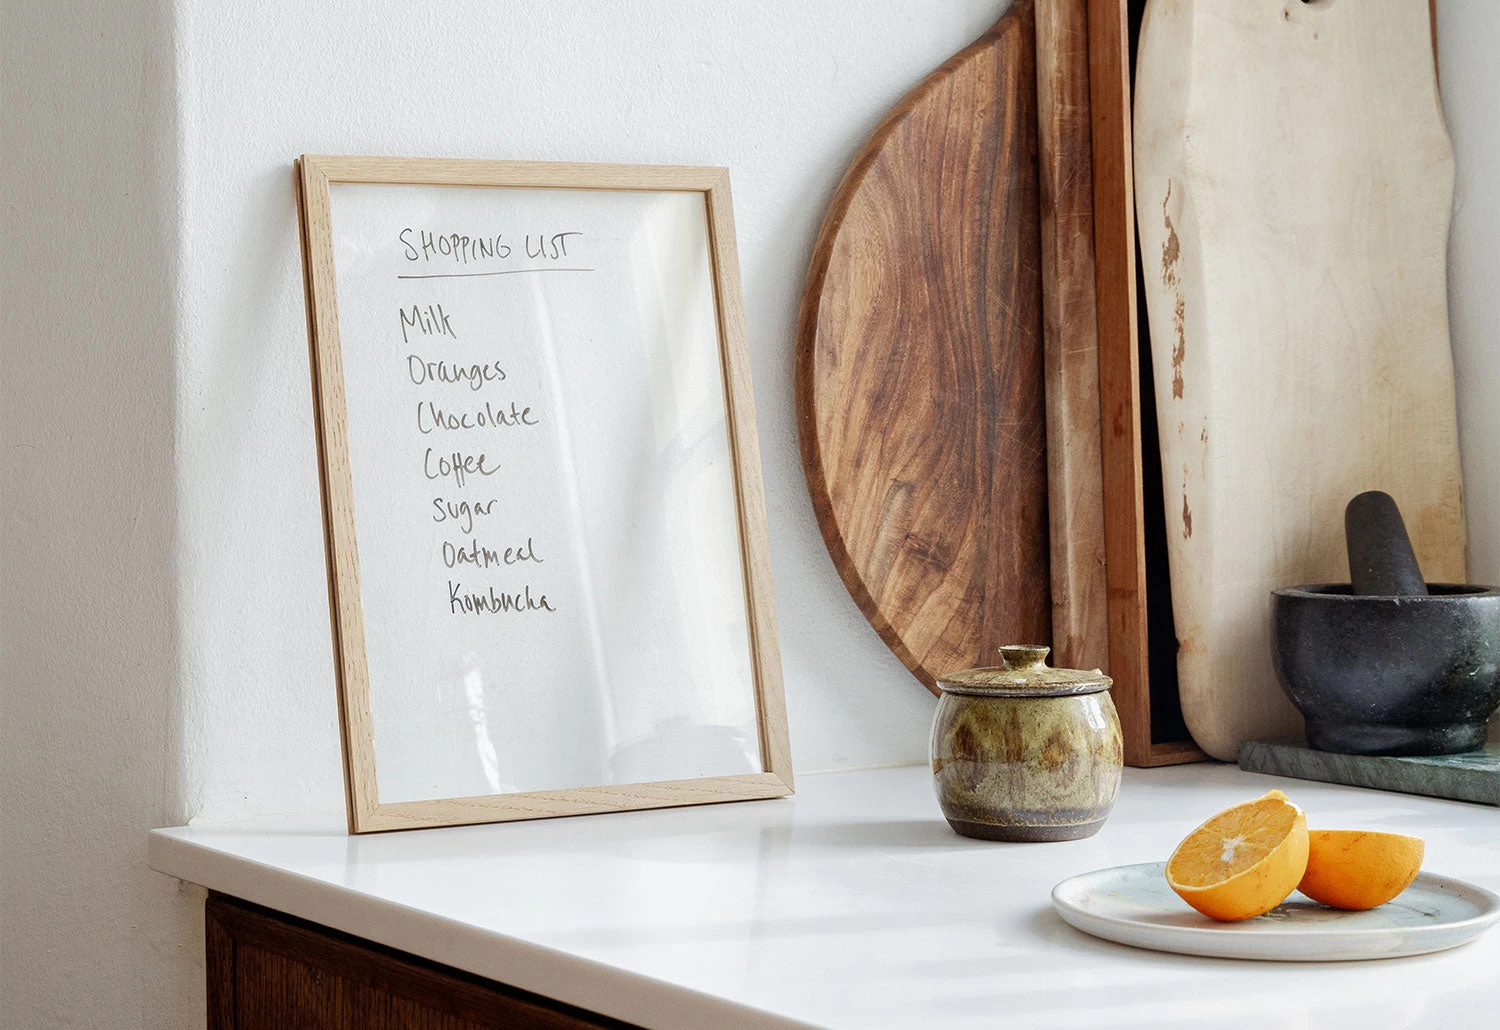 SHOPPING LIST
Milk
Oranges
Chocolate
Coffee
Sugar
Oatmeal
Kombucha